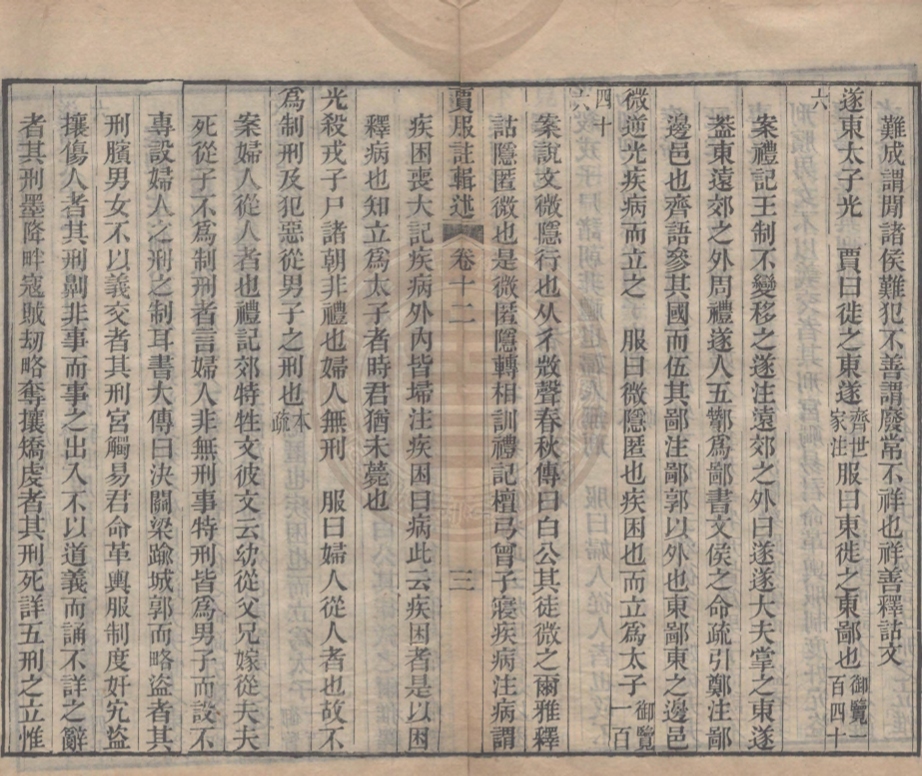 難成謂聞諸侯難犯不善謂廢常不祥也祥善釋詁文
遂東太子光　賈曰徙之東遂齊世家注服曰東徙之東鄙也御覽一百四十六
案禮記王制不變移之遂注遠郊之外曰遂遂大夫掌之東遂
葢東遠郊之外周禮遂人五酇爲鄙書文侯之命疏引鄭注鄙
邊邑也齊語參其國而伍其鄙注鄙郭以外也東鄙東之邊邑
微逆光疾病而立之　服曰微隱匿也疾困也而立爲太子御覽一百四十六
案說文微隱行也从彳𢼸聲春秋傳曰白公其徒微之爾雅釋
詁隱匿微也是微匿隱轉相訓禮記檀弓曾子寢疾病注病謂
疾困喪大記疾病外內皆埽注疾困曰病此云疾困者是以困
釋病也知立爲太子者時君猶未薨也
光殺戎子尸諸朝非禮也婦人無刑　服曰婦人從人者也故不
爲制刑及犯惡從男子之刑也本疏
案婦人從人者也禮記郊特牲文彼文云幼從父兄嫁從夫夫
死從子不爲制刑者言婦人非無刑事特刑皆爲男子而設不
專設婦人之刑之制耳書大傳曰決關梁踰城郭而略盜者其
刑臏男女不以義交者其刑宮觸易君命革輿服制度奸宄盜
攘傷人者其刑劓非事而事之出入不以道義而誦不詳之辭
者其刑墨降畔寇賊劫略奪攘矯虔者其刑死詳五刑之立惟
賈服註輯述　卷十二　三